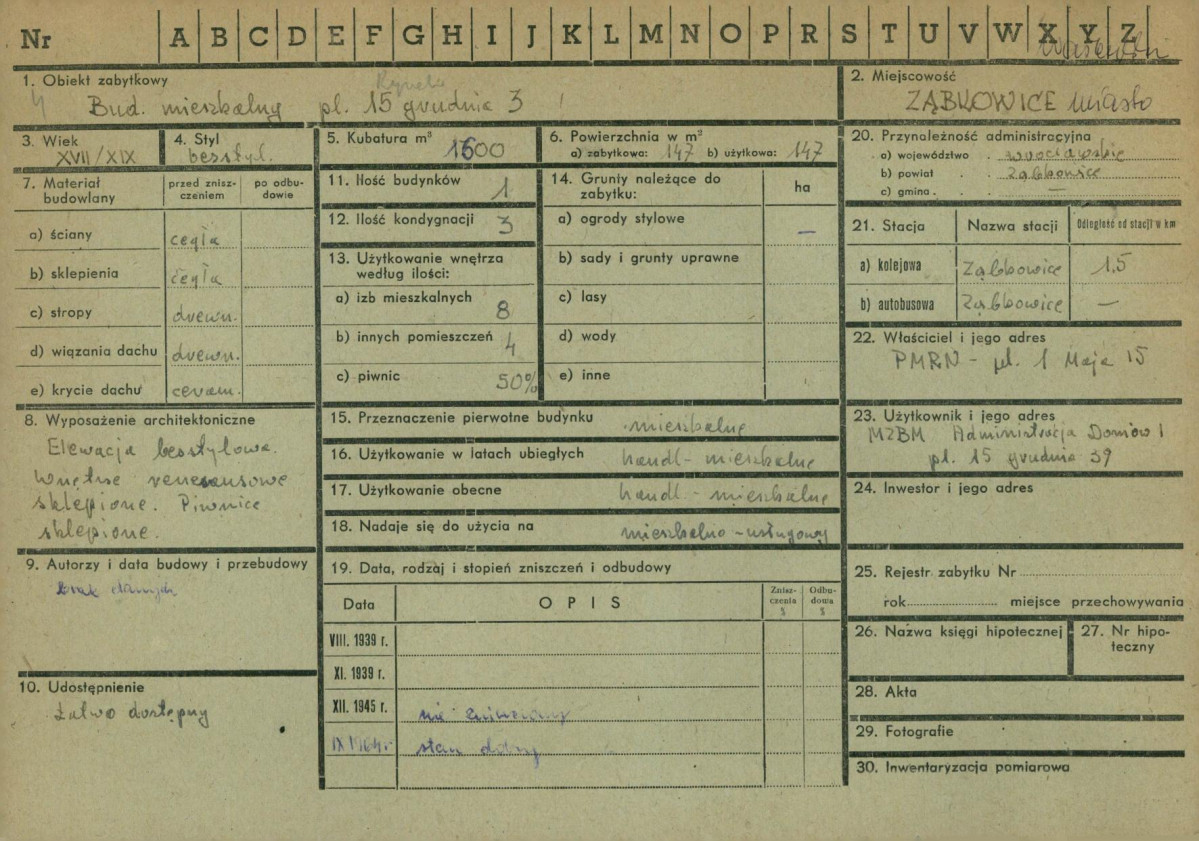 Nr A B C D E F G H I J K L M N O P R S T U V W X Y Z
1. Obiekt zabytkowy
Rynek
Bud. mieszkalny pl. 15 grudnia 3
2. Miejscowość
ZĄBKOWICE miasto
3. Wiek
XVII/XIX
4. Styl
besstyl.
5. Kubatura m³
1600
6. Powierzchnia w m²
a) zabytkowa: 147 b) użytkowa: 147
7. Materiał budowlany
przed znisz-
czeniem
po odbu-
dowie
a) ściany cegła
b) sklepienia cegła
c) stropy drewn.
d) wiązania dachu drewn.
e) krycie dachu ceram.
8. Wyposażenie architektoniczne
Elewacja besstylowa.
Wnętrze renesansowe
sklepione. Piwnice
sklepione.
9. Autorzy i data budowy i przebudowy
brak danych
10. Udostępnienie
Łatwo dostępny
11. Ilość budynków 1
12. Ilość kondygnacji 3
13. Użytkowanie wnętrza
według ilości:
a) izb mieszkalnych 8
b) innych pomieszczeń 4
c) piwnic 50%
14. Grunty należące do
zabytku:
ha
a) ogrody stylowe –
b) sady i grunty uprawne
c) lasy
d) wody
e) inne
15. Przeznaczenie pierwotne budynku mieszkalne
16. Użytkowanie w latach ubiegłych handl-mieszkalne
17. Użytkowanie obecne handl-mieszkalne
18. Nadaje się do użycia na mieszkalno-usługowy
19. Data, rodzaj i stopień zniszczeń i odbudowy
Data OPIS
Znisz-
czenia
%
Odbu-
dowa
%
VIII. 1939 r.
XI. 1939 r.
XII. 1945 r. nie
IX 1964 r. stan dobry
20. Przynależność administracyjna
a) województwo wrocławskie
b) powiat Ząbkowice
c) gmina –
21. Stacja Nazwa stacji Odległość od stacji w km
a) kolejowa Ząbkowice 1,5
b) autobusowa Ząbkowice –
22. Właściciel i jego adres
PMRN - pl. 1 Maja 15
23. Użytkownik i jego adres
MZBM Administracja Domów 1
pl. 15 grudnia 39
24. Inwestor i jego adres
25. Rejestr zabytku Nr
rok miejsce przechowywania
26. Nazwa księgi hipotecznej
27. Nr hipo-
teczny
28. Akta
29. Fotografie
30. Inwentaryzacja pomiarowa